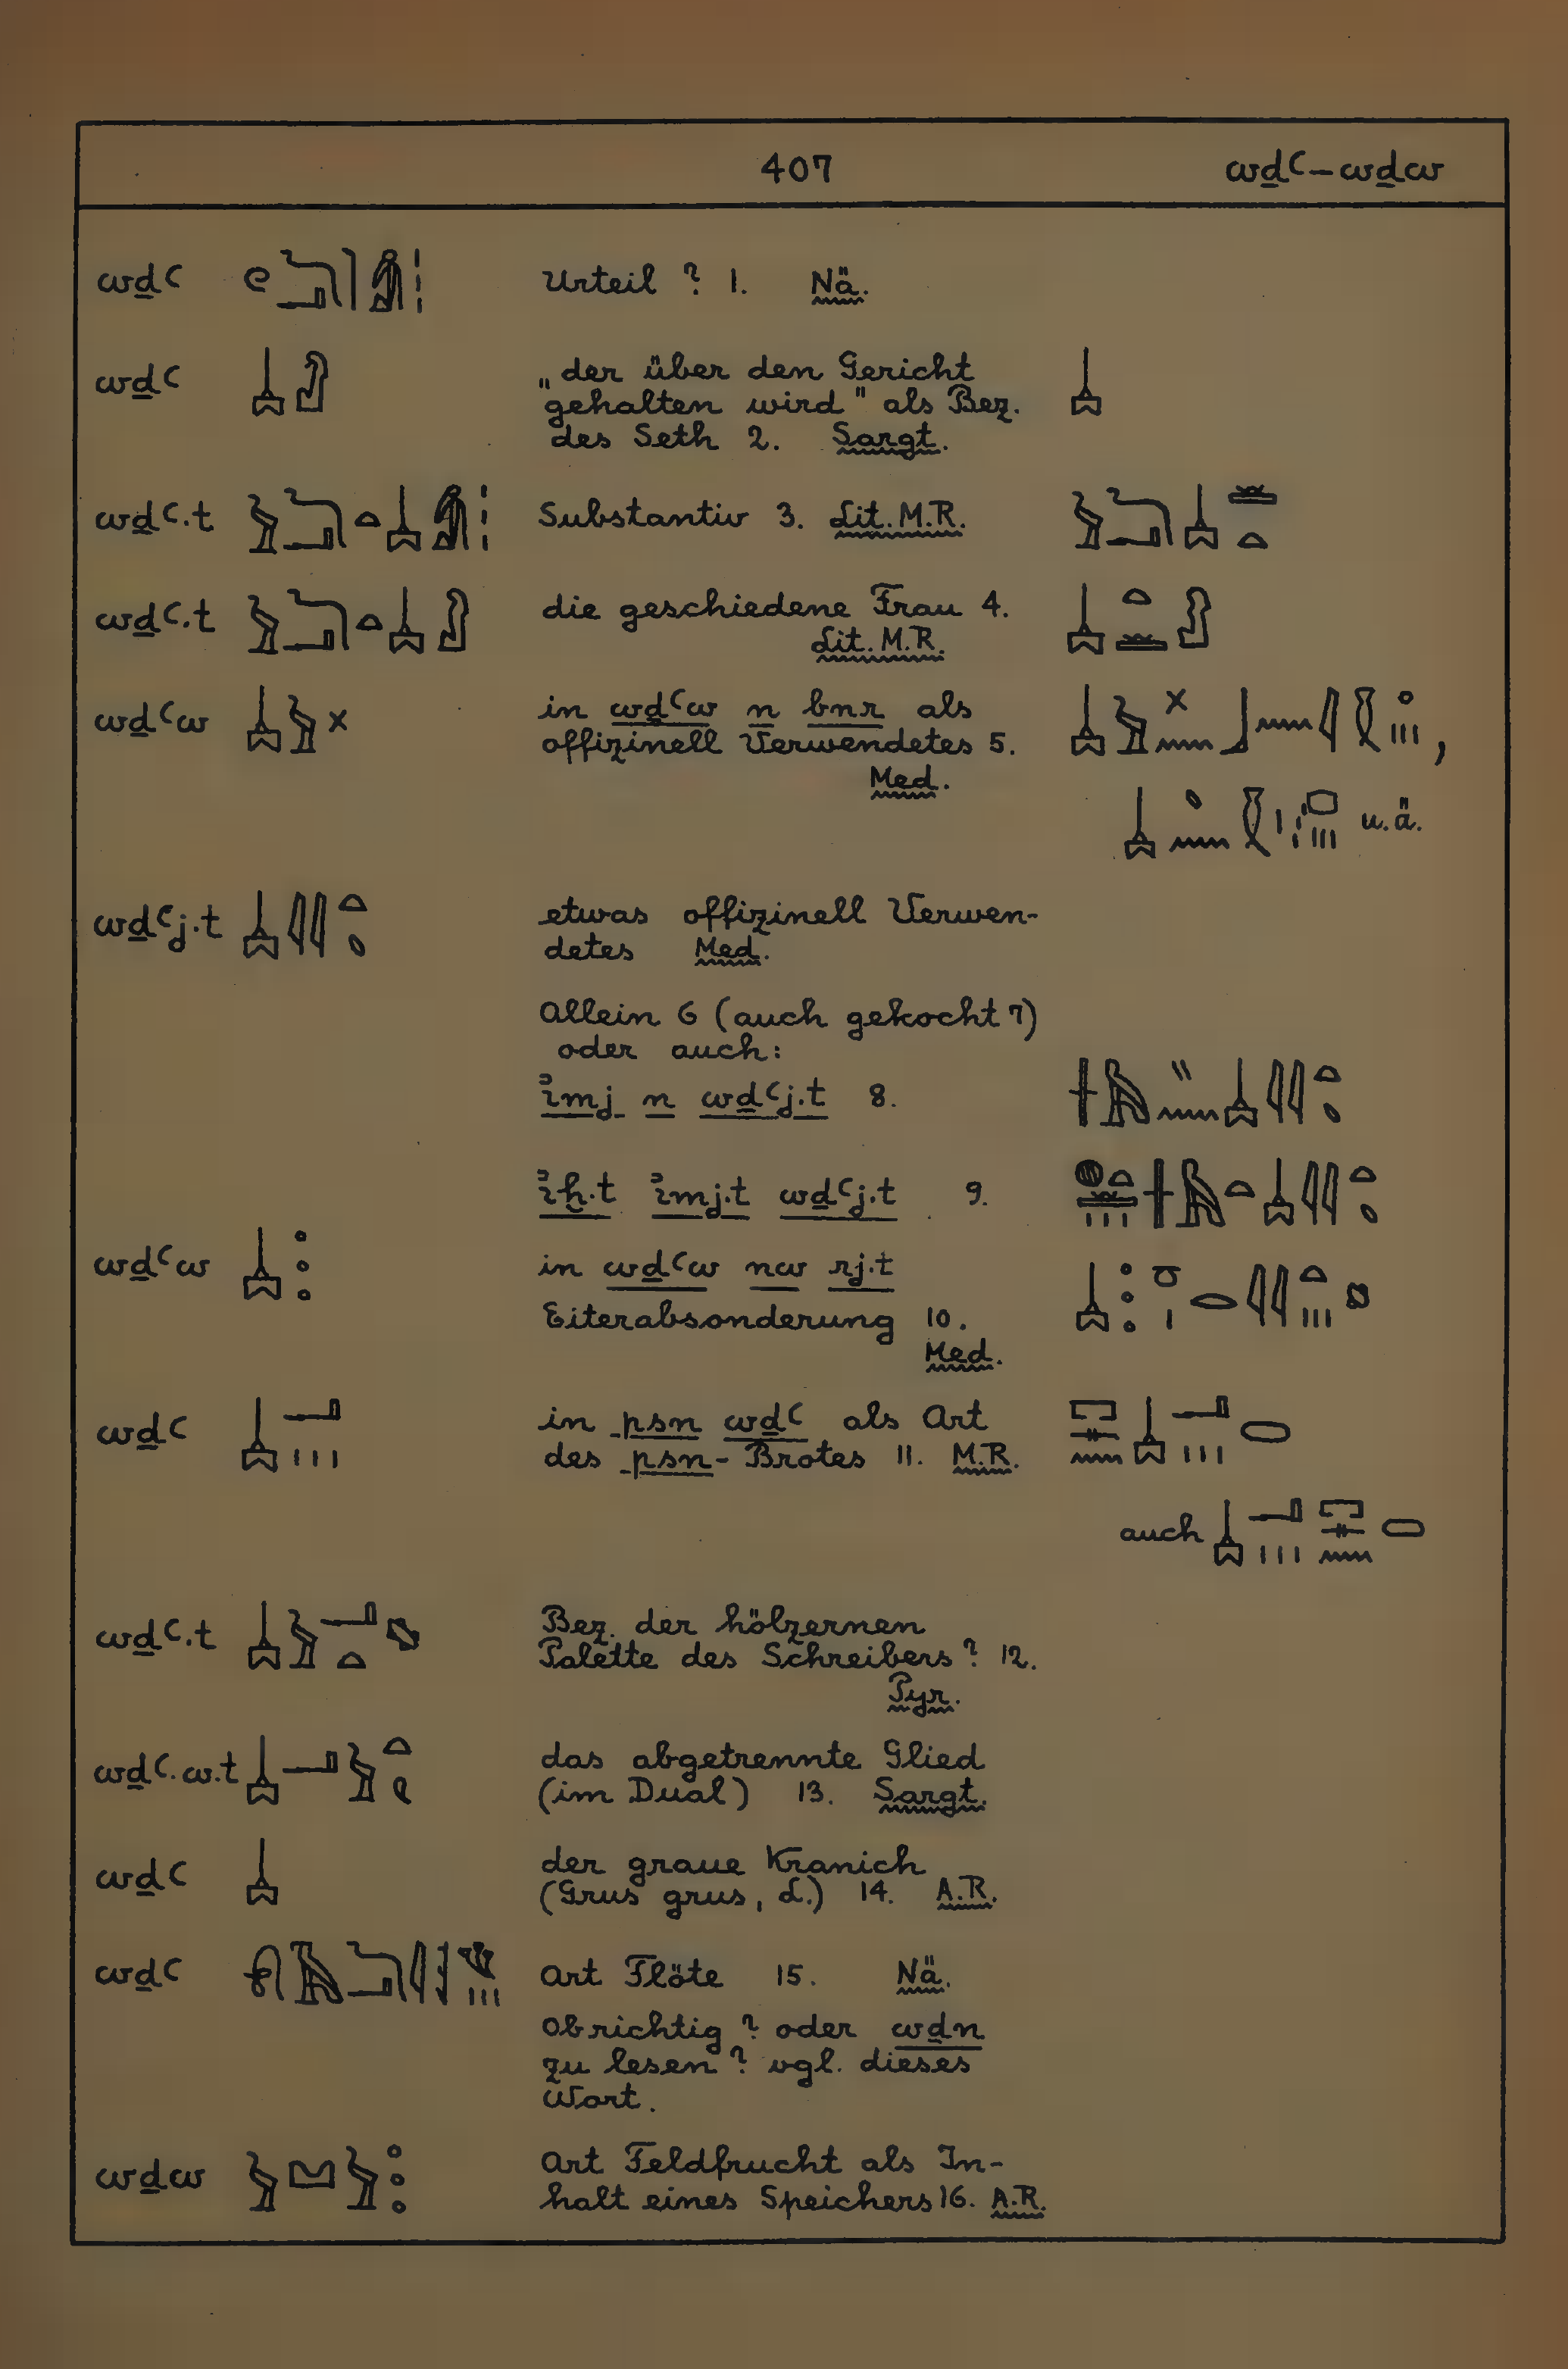 407 wḏꜥ – wḏw
wḏꜥ Urteil ? 1. Nä.
wḏꜥ „der über den Gericht
gehalten wird" als Bez.
des Seth 2. Sargt.
wḏꜥ.t Substantiv 3. Lit. M.R.
wḏꜥ.t die geschiedene Frau 4.
Lit. M.R.
wḏꜥw in wḏꜥw n bnr als
offizinell Verwendetes 5.
Med.
u.ä.
wḏꜥj.t etwas offizinell Verwen-
detes Med.
Allein 6 (auch gekocht 7)
oder auch:
ꞽmj n wḏꜥj.t 8.
ꞽḫ.t ꞽmj.t wḏꜥj.t 9.
wḏꜥw in wḏꜥw nw rj.t
Eiterabsonderung 10.
Med.
wḏꜥ in psn wḏꜥ als Art
des psn-Brotes 11. M.R.
auch
wḏꜥ.t Bez. der hölzernen
Palette des Schreibers ? 12.
Pyr.
wḏꜥ.w.t das abgetrennte Glied
(im Dual) 13. Sargt.
wḏꜥ der graue Kranich
(Grus grus, L.) 14. A.R.
wḏꜥ Art Flöte 15. Nä.
Ob richtig ? oder wḏn
zu lesen ? vgl. dieses
Wort.
wḏw Art Feldfrucht als In-
halt eines Speichers 16. A.R.